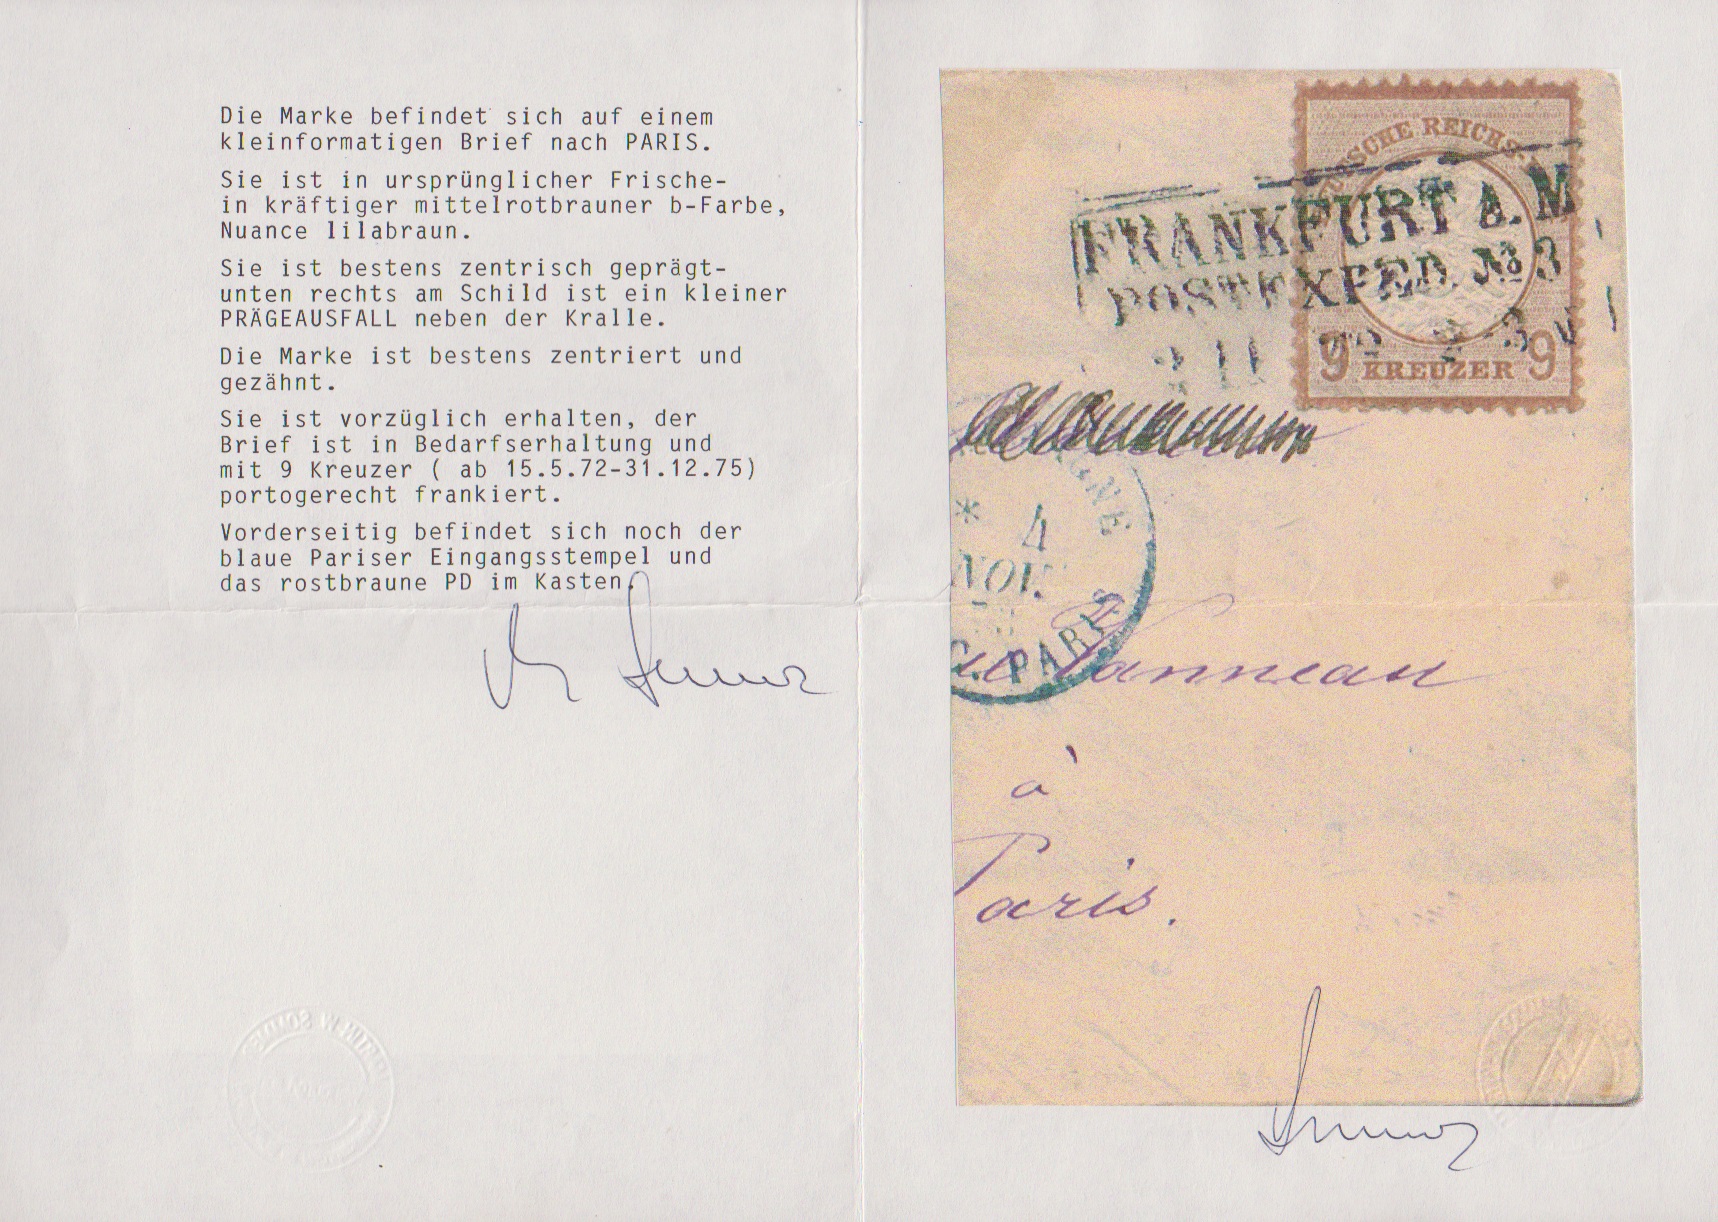 Die Marke befindet sich auf einem
kleinformatigen Brief nach PARIS.
Sie ist in ursprünglicher Frische-
in kräftiger mittelrotbrauner b-Farbe,
Nuance lilabraun.
Sie ist bestens zentrisch geprägt-
unten rechts am Schild ist ein kleiner
PRÄGEAUSFALL neben der Kralle.
Die Marke ist bestens zentriert und
gezähnt.
Sie ist vorzüglich erhalten, der
Brief ist in Bedarfserhaltung und
mit 9 Kreuzer ( ab 15.5.72-31.12.75)
portogerecht frankiert.
Vorderseitig befindet sich noch der
blaue Pariser Eingangsstempel und
das rostbraune PD im Kasten.
REICHS-
FRANKFURT A. M
POSTEXPED. No 3
9 KREUZER 9
* 4
NOV.
PARIS
Vanneau
à
Paris.